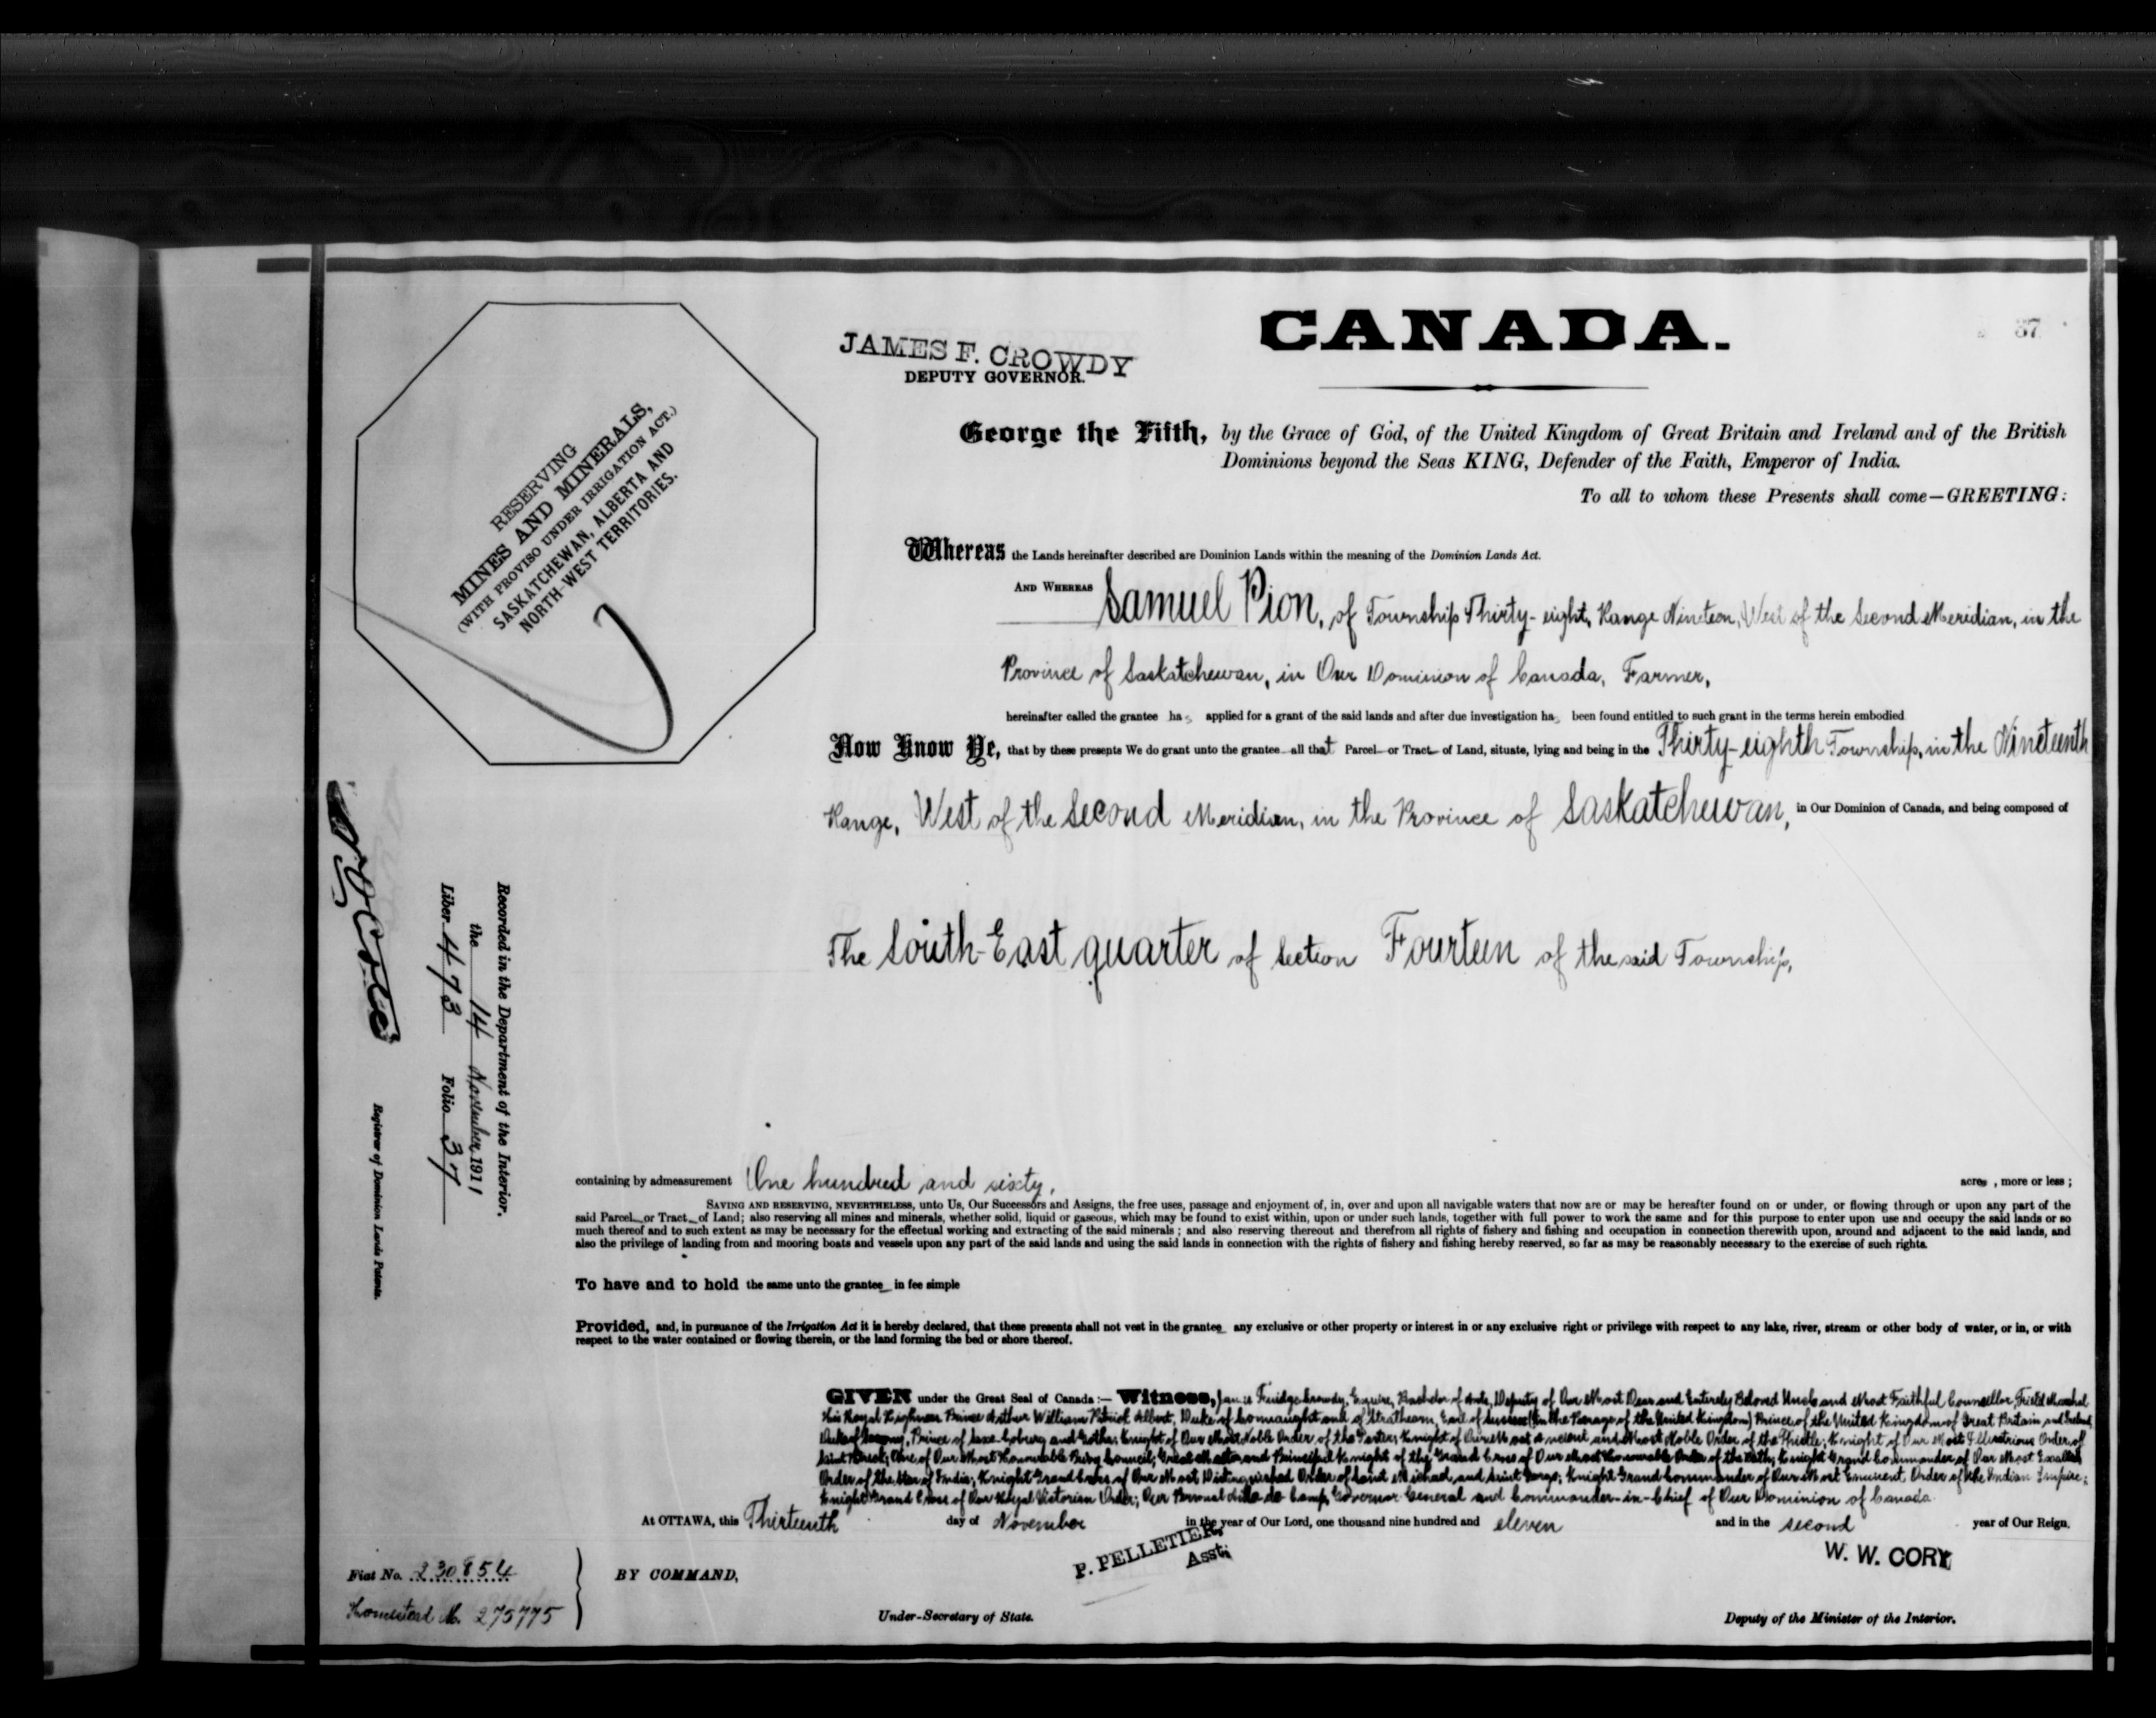 CANADA.
37
JAMES F. CROWDY
DEPUTY GOVERNOR.
RESERVING
MINES AND MINERALS,
(WITH PROVISO UNDER IRRIGATION ACT.)
SASKATCHEWAN, ALBERTA AND
NORTH-WEST TERRITORIES.
George the Fifth, by the Grace of God, of the United Kingdom of Great Britain and Ireland and of the British
Dominions beyond the Seas KING, Defender of the Faith, Emperor of India.
To all to whom these Presents shall come—GREETING:
Whereas the Lands hereinafter described are Dominion Lands within the meaning of the Dominion Lands Act.
AND WHEREAS Samuel Pion, of Township Thirty-eight, Range Nineteen, West of the Second Meridian, in the
Province of Saskatchewan, in Our Dominion of Canada, Farmer,
hereinafter called the grantee has applied for a grant of the said lands and after due investigation has been found entitled to such grant in the terms herein embodied
Now Know Ye, that by these presents We do grant unto the grantee all that Parcel or Tract of Land, situate, lying and being in the Thirty-eighth Township, in the Nineteenth
Range, West of the Second Meridian, in the Province of Saskatchewan, in Our Dominion of Canada, and being composed of
The South-East quarter of Section Fourteen of the said Township,
Recorded in the Department of the Interior.
the 14 November 1911
Liber 473 Folio 37
Registrar of Dominion Lands Patents.
containing by admeasurement One hundred and sixty, acres, more or less;
SAVING AND RESERVING, NEVERTHELESS, unto Us, Our Successors and Assigns, the free uses, passage and enjoyment of, in, over and upon all navigable waters that now are or may be hereafter found on or under, or flowing through or upon any part of the
said Parcel or Tract of Land; also reserving all mines and minerals, whether solid, liquid or gaseous, which may be found to exist within, upon or under such lands, together with full power to work the same and for this purpose to enter upon use and occupy the said lands or so
much thereof and to such extent as may be necessary for the effectual working and extracting of the said minerals; and also reserving thereout and therefrom all rights of fishery and fishing and occupation in connection therewith upon, around and adjacent to the said lands, and
also the privilege of landing from and mooring boats and vessels upon any part of the said lands and using the said lands in connection with the rights of fishery and fishing hereby reserved, so far as may be reasonably necessary to the exercise of such rights.
To have and to hold the same unto the grantee in fee simple
Provided, and, in pursuance of the Irrigation Act it is hereby declared, that these presents shall not vest in the grantee any exclusive or other property or interest in or any exclusive right or privilege with respect to any lake, river, stream or other body of water, or in, or with
respect to the water contained or flowing therein, or the land forming the bed or shore thereof.
GIVEN under the Great Seal of Canada:— Witness, James Fuidge Crowdy, Esquire, Bachelor of Arts, Deputy of Our Most Dear and Entirely Beloved Uncle and Most Faithful Counsellor, Field Marshal
His Royal Highness Prince Arthur William Patrick Albert, Duke of Connaught and of Strathearn, Earl of Sussex (in the Peerage of the United Kingdom) Prince of the United Kingdom of Great Britain and Ireland,
Duke of Saxony, Prince of Saxe-Coburg and Gotha; Knight of Our Most Noble Order of the Garter; Knight of Our Most Ancient and Most Noble Order of the Thistle; Knight of Our Most Illustrious Order of
Saint Patrick; One of Our Most Honourable Privy Council; Great Master and Principal Knight of the Grand Cross of Our Most Honourable Order of the Bath; Knight Grand Commander of Our Most Exalted
Order of the Star of India; Knight Grand Cross of Our Most Distinguished Order of Saint Michael and Saint George; Knight Grand Commander of Our Most Eminent Order of the Indian Empire;
Knight Grand Cross of Our Royal Victorian Order; Our Personal Aide de Camp, Governor General and Commander-in-Chief of Our Dominion of Canada.
At OTTAWA, this Thirteenth day of November in the year of Our Lord, one thousand nine hundred and eleven and in the second year of Our Reign.
P. PELLETIER,
Asst.
W. W. CORY
Fiat No. 230854
Homestead No. 275775
BY COMMAND,
Under-Secretary of State.
Deputy of the Minister of the Interior.